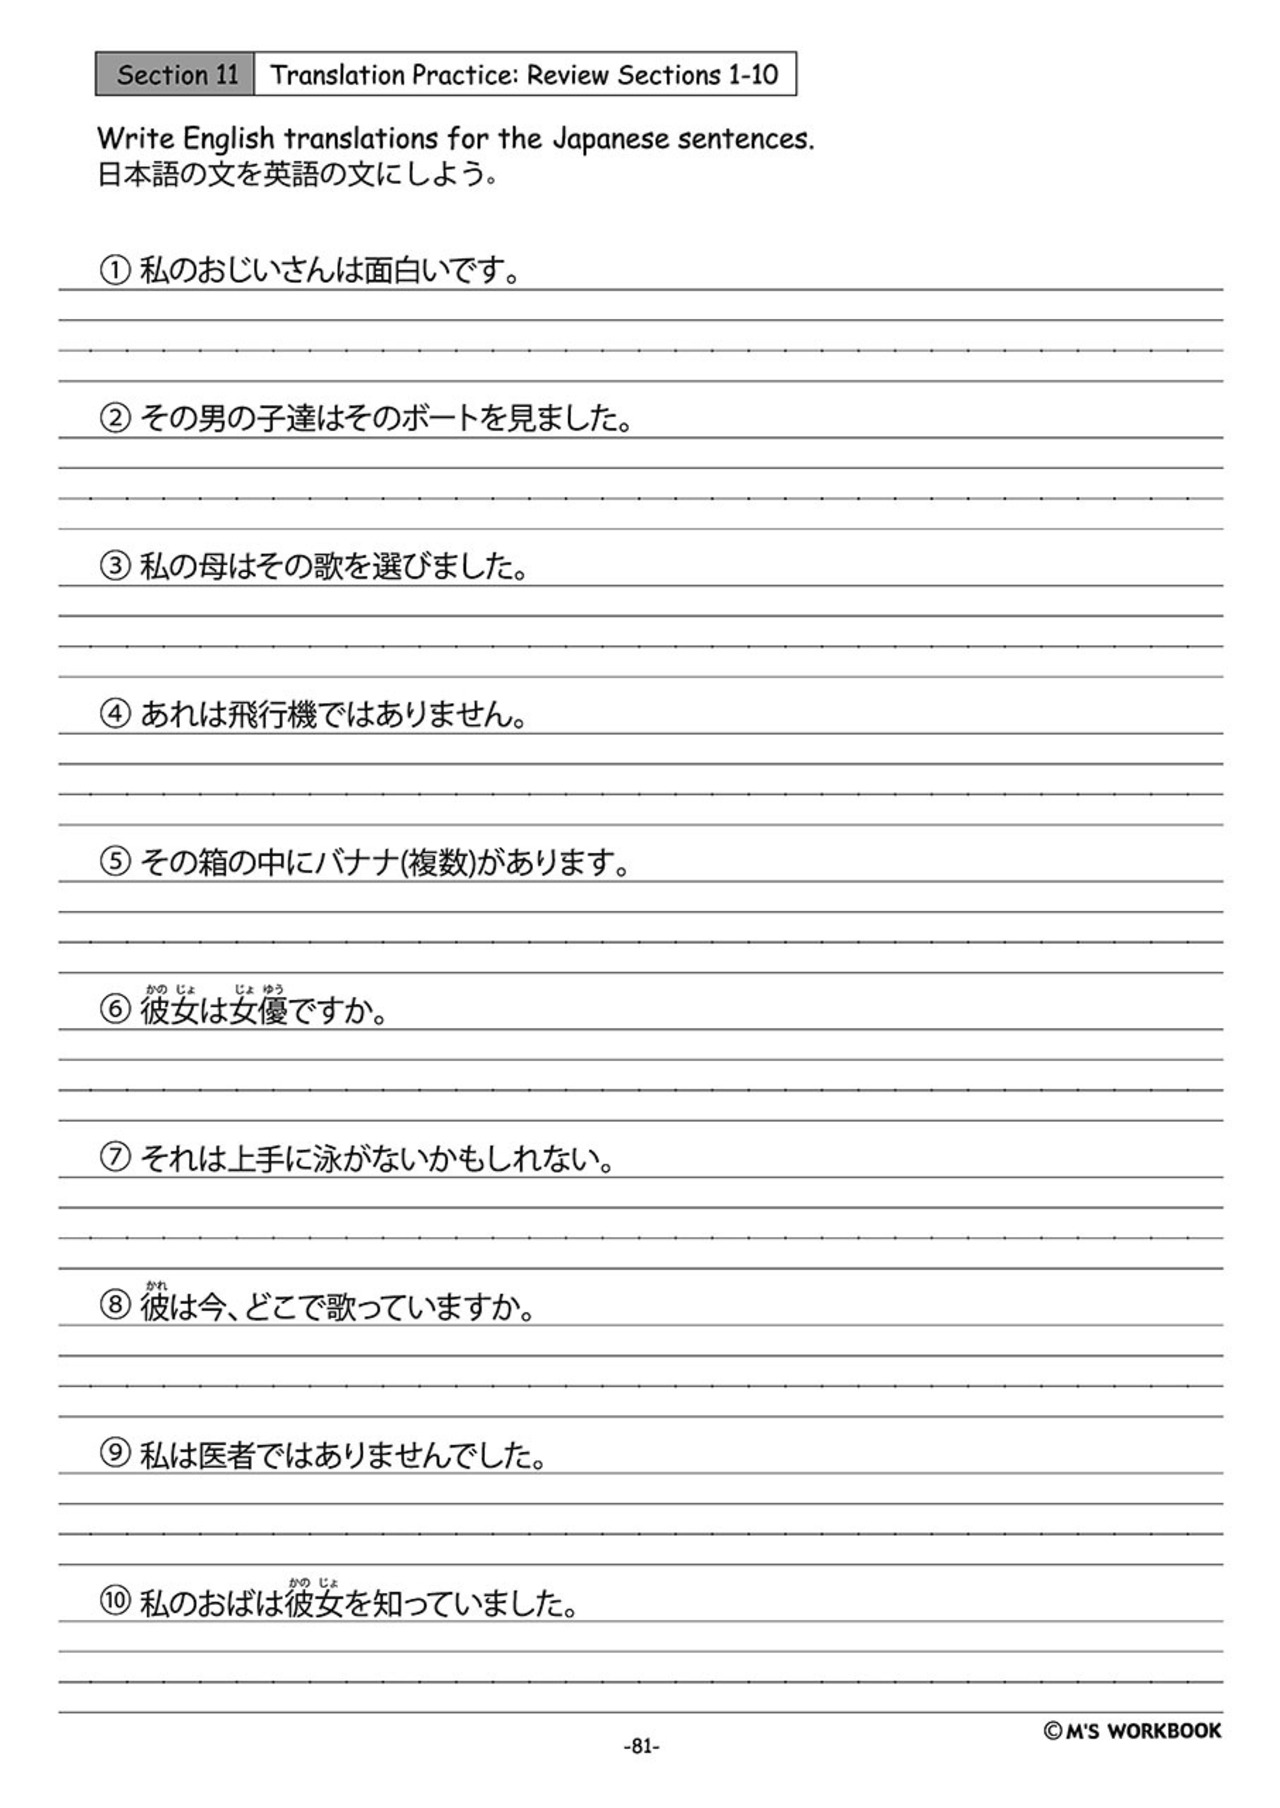 Section 11 Translation Practice: Review Sections 1-10
Write English translations for the Japanese sentences.
日本語の文を英語の文にしよう。
① 私のおじいさんは面白いです。
② その男の子達はそのボートを見ました。
③ 私の母はその歌を選びました。
④ あれは飛行機ではありません。
⑤ その箱の中にバナナ(複数)があります。
かの じょ じょ ゆう
⑥ 彼女は女優ですか。
⑦ それは上手に泳がないかもしれない。
かれ
⑧ 彼は今、どこで歌っていますか。
⑨ 私は医者ではありませんでした。
かの じょ
⑩ 私のおばは彼女を知っていました。
©M'S WORKBOOK
-81-